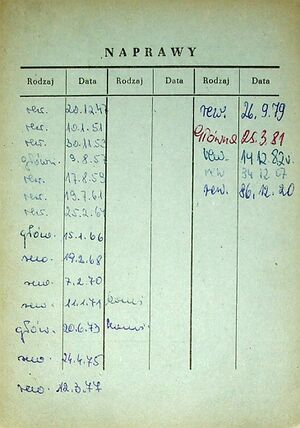 NAPRAWY
Rodzaj Data Rodzaj Data Rodzaj Data
rew. 20.12.47
rew. 10.1.51
rew. 30.11.53
główn. 9.8.57
rew. 17.8.59
rew. 19.7.61
rew. 25.2.64
głów. 15.1.66
rew. 19.2.68
rew. 7.2.70
rew. 11.1.71
głów. 20.6.73
rew. 24.4.75
rew. 12.3.77
rew. 26.9.79
Główna 25.3.81
rew. 14.12.82
rew 34.12.07
rew. 86.12.20